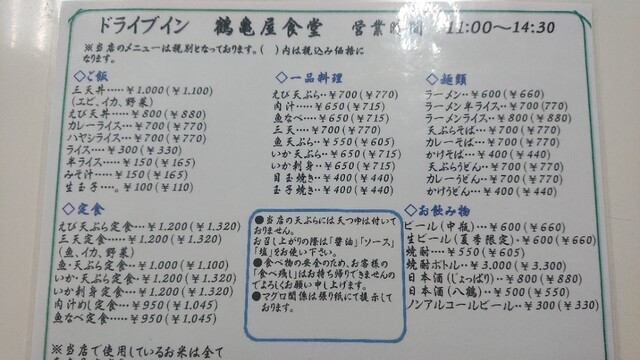 ドライブイン 鶴亀屋食堂 営業時間 11:00～14:30
※当店のメニューは税別となっております。( )内は税込み価格に
なります。
◇ご飯
三天丼‥￥1.000(￥1.100)
(エビ、イカ、野菜)
えび天丼‥‥￥800(￥880)
カレーライス‥￥700(￥770)
ハヤシライス‥￥700(￥770)
ライス‥‥￥300(￥330)
半ライス‥‥￥150(￥165)
みそ汁‥‥￥150(￥165)
生玉子‥‥。￥100(￥110)
◇定食
えび天ぷら定食‥￥1.200(￥1.320)
三天定食‥‥￥1.200(￥1.320)
(魚、イカ、野菜)
魚・天ぷら定食‥￥1.000(￥1.100)
いか・天ぷら定食‥￥1.200(￥1.320)
いか刺身定食‥￥1.200(￥1.320)
肉汁めし定食‥￥950(￥1.045)
魚なべ定食‥‥‥￥950(￥1.045)
※当店で使用しているお米は全て
◇一品料理
えび天ぷら‥￥700(￥770)
肉汁‥‥￥650(￥715)
魚なべ‥‥￥650(￥715)
三天‥‥￥700(￥770)
魚天ぷら‥￥550(￥605)
いか天ぷら‥￥650(￥715)
いか刺身‥￥650(￥715)
目玉焼き‥￥400(￥440)
玉子焼き‥￥400(￥440)
●当店の天ぷらには天つゆは付いて
おりません。
お召し上がりの際は「醤油」「ソース」
「塩」をお使い下さい。
●食べ物の安全のため、お客様の
「食べ残し」はお持ち帰りできませんの
でよろしくお願い申し上げます。
●マグロ関係は張り紙にて提示して
おります。
◇麺類
ラーメン‥￥600(￥660)
ラーメン半ライス‥￥700(770)
ラーメンライス‥￥800(￥880)
天ぷらそば‥￥700(￥770)
カレーそば‥￥700(￥770)
かけそば‥￥400(￥440)
天ぷらうどん‥￥700(￥770)
カレーうどん‥￥700(￥770)
かけうどん‥￥400(￥440)
◇お飲み物
ビール(中瓶)‥￥600(￥660)
生ビール(夏季限定)‥￥600(￥660)
焼酎‥‥￥550(￥605)
焼酎ボトル‥￥3.000(￥3.300)
日本酒(じょっぱり)‥￥800(￥880)
日本酒(八鶴)‥￥500(￥550)
ノンアルコールビール‥￥300(￥330)